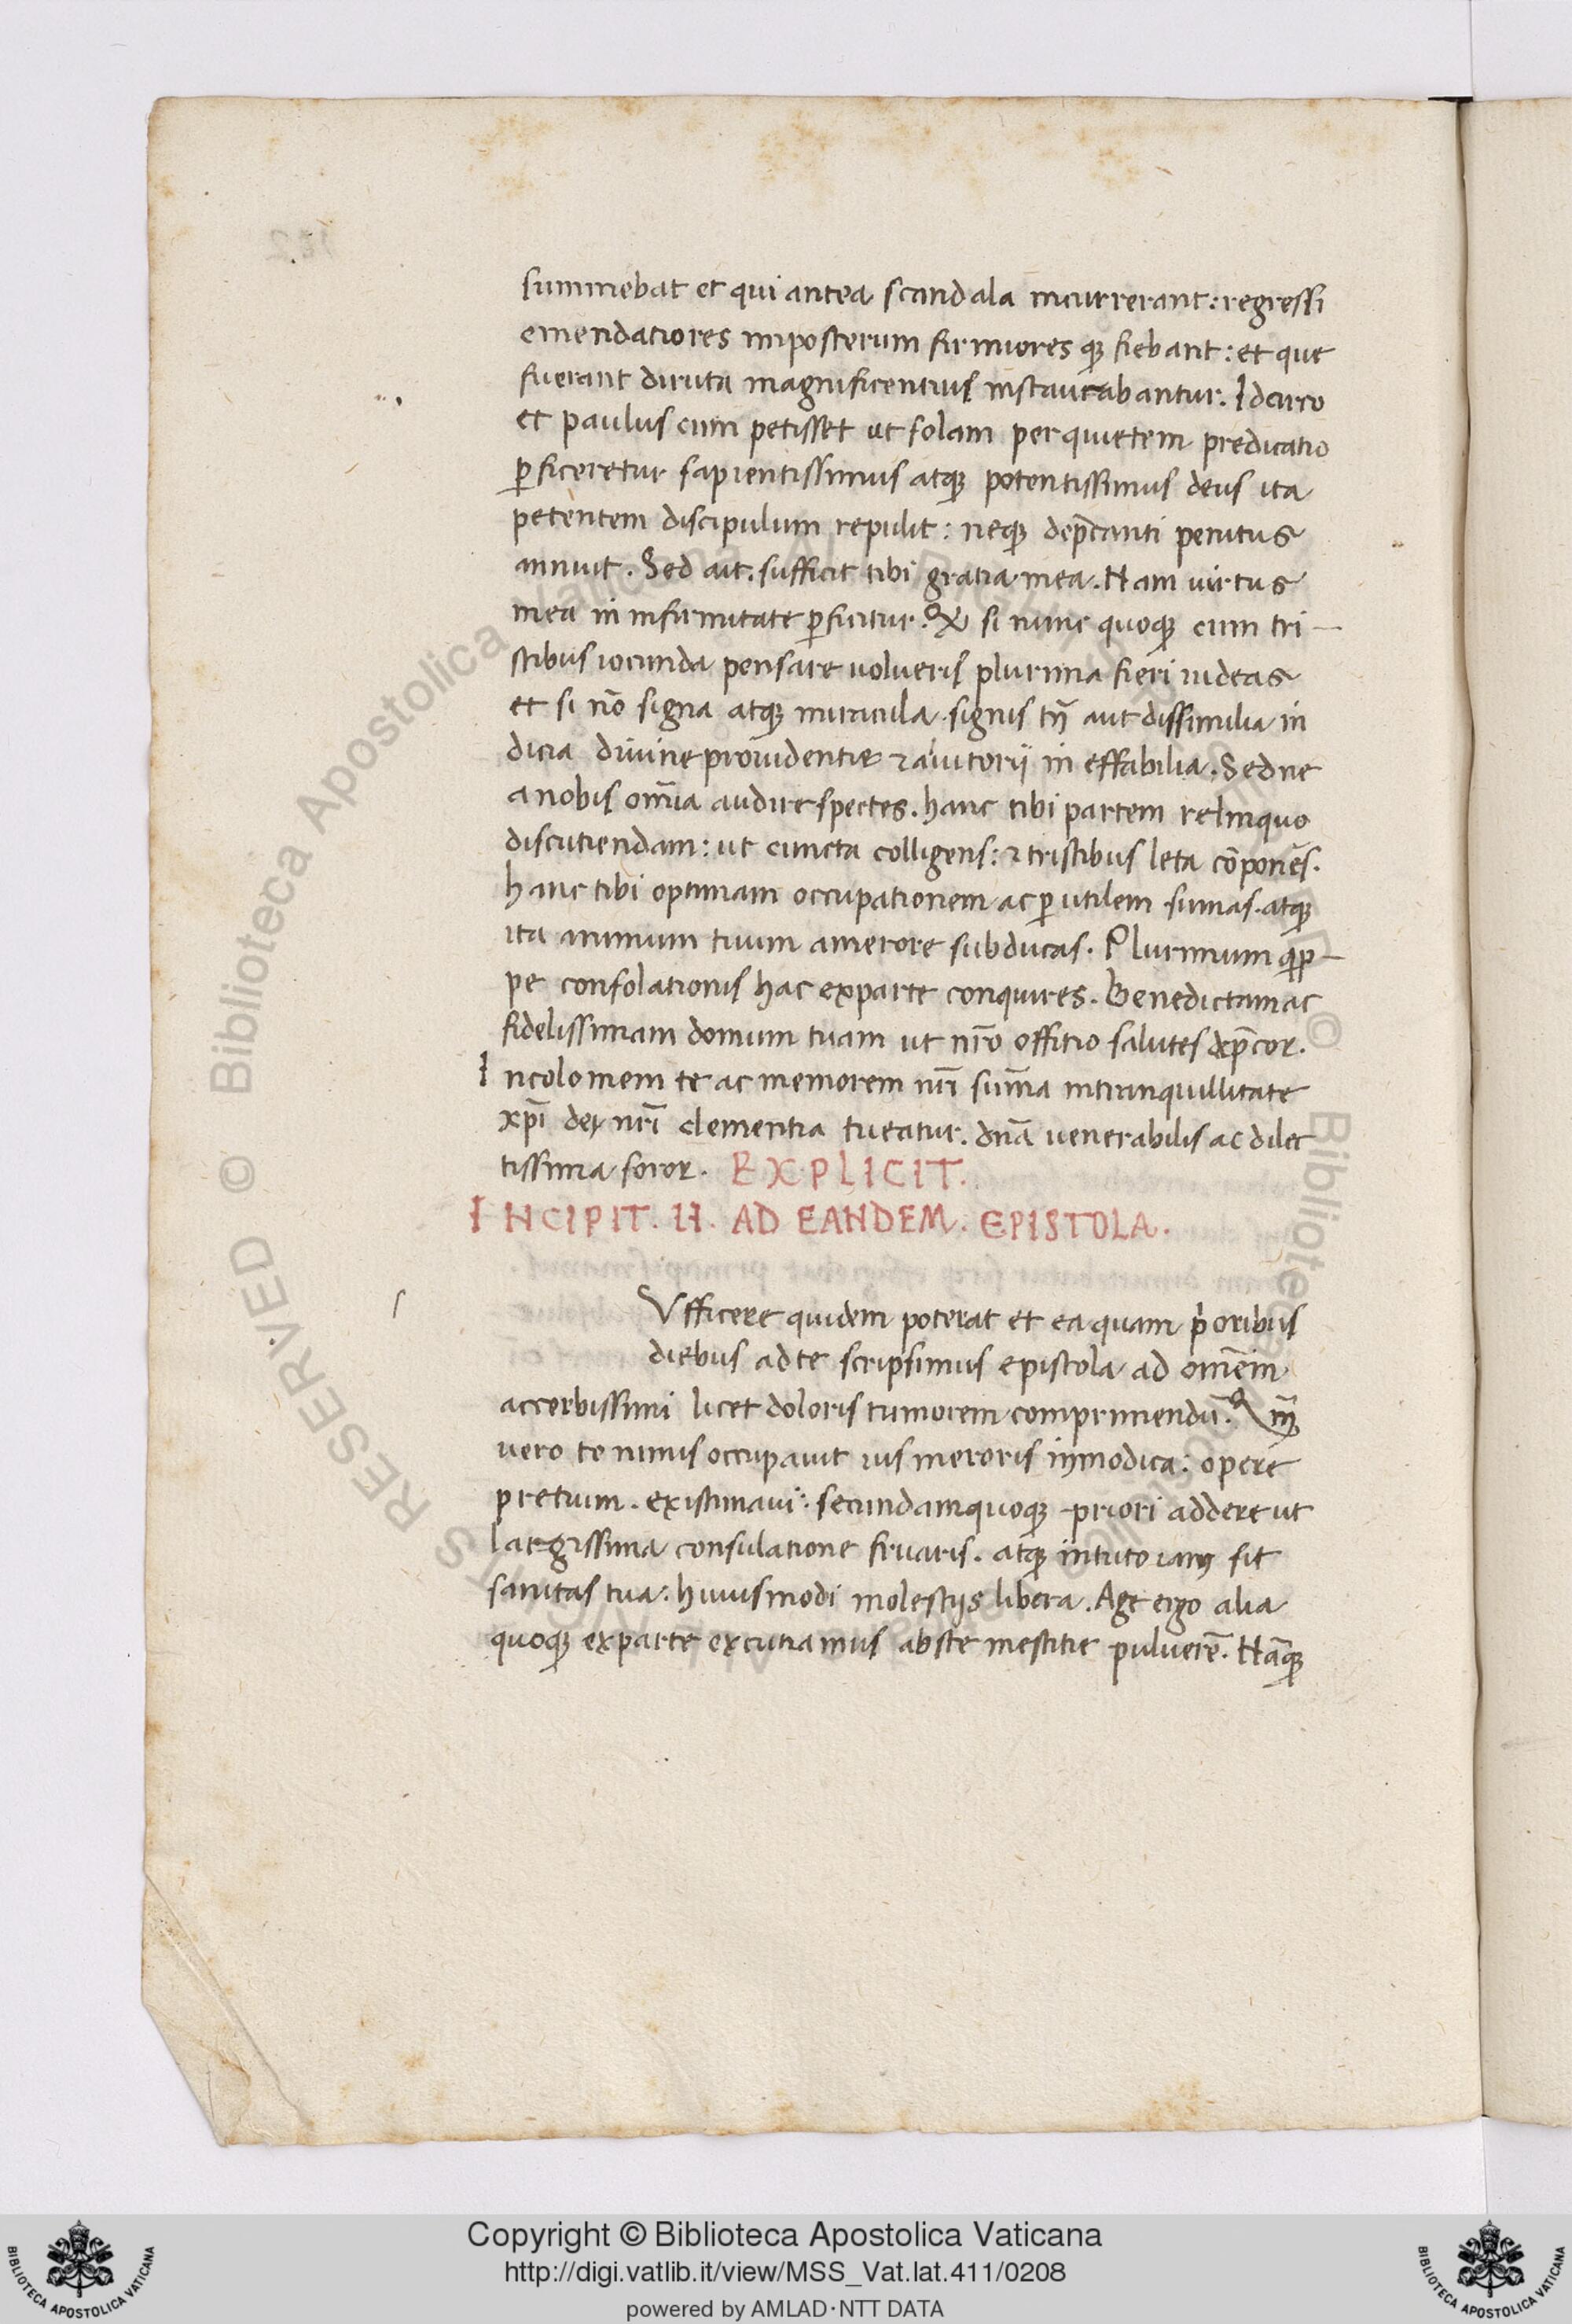 summebat et qui antea scandala incurrerant: regressi
emendatiores imposterum firmioresqꝫ fiebant: et que
fuerant diruta magnificentius instaurabantur. Idcirco
et paulus cum petisset ut solam per quietem predicatio
ꝑficeretur sapientissimus atqꝫ potentissimus deus ita
petentem discipulum repulit: neqꝫ dep̄canti penitus
annuit. Sed ait. sufficit tibi gratia mea. Nam uirtus
mea in infirmitate ꝑficitur. si nunc quoqꝫ cum tri-
stibus iocunda pensare uolueris plurima fieri uideas
et si nō signa atqꝫ miracula signis tn̄ aut dissimilia in
dicia diuine prouidentie ⁊ aiutorii in effabilia. Sed ne
a nobis om̄ia audire spectes. hanc tibi partem relinquo
discutiendam: ut cuncta colligens: ⁊ tristibus leta cōponēs.
hanc tibi optimam occupationem ac ꝑutilem sumas. atqꝫ
ita animum tuum amerore subducas. Plurimum quip-
pe consolationis hac exparte conquires. Benedictam ac
fidelissimam domum tuam ut nr̄o offitio salutes dep̄cor.
Incolomem te ac memorem nr̄i sum̄a intranquillitate
xp̄i dei nr̄i clementia tueatur. dn̄a uenerabilis ac dilec
tissima soror. EXPLICIT.
INCIPIT. II. AD EANDEM. EPISTOLA.
s
Ufficere quidem poterat et ea quam prioribus
diebus ad te scripsimus epistola ad om̄em
accerbissimi licet doloris tumorem comprimendū. Qm̄
uero te nimis occupauit uis meroris inmodica: opere
pretium. existimaui: secundam quoqꝫ priori addere ut
largissima consulatione fruaris. atqꝫ intuto iam sit
sanitas tua: huiusmodi molestijs libera. Age ergo alia
quoqꝫ exparte excutiamus abste mestitie puluerē. Nāqꝫ
Copyright © Biblioteca Apostolica Vaticana
http://digi.vatlib.it/view/MSS_Vat.lat.411/0208
powered by AMLAD·NTT DATA